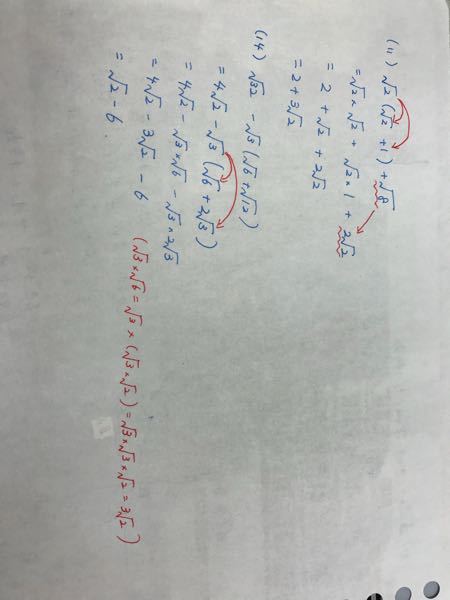 (11) √2 (√2 + 1) + √8
= √2 × √2 + √2 × 1 + 2√2
= 2 + √2 + 2√2
= 2 + 3√2
(14) √32 - √3 (√6 + √12)
= 4√2 - √3 (√6 + 2√3)
= 4√2 - √3 × √6 - √3 × 2√3
= 4√2 - 3√2 - 6 (√3 × √6 = √3 × (√3 × √2) = √3 × √3 × √2 = 3√2)
= √2 - 6